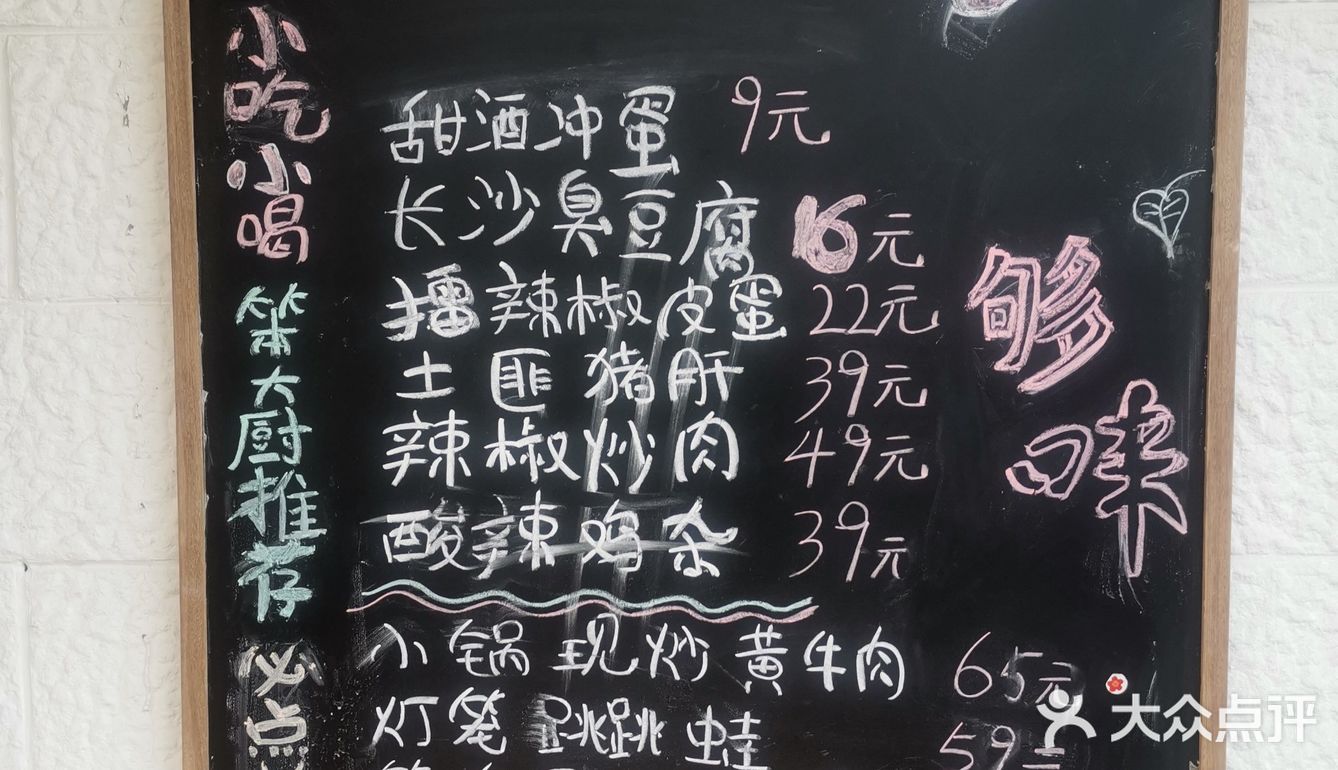 小吃小喝
笨大厨推荐
必点
甜酒冲蛋 9元
长沙臭豆腐 16元
擂辣椒皮蛋 22元
土匪猪肝 39元
辣椒炒肉 49元
酸辣鸡杂 39元
小锅现炒黄牛肉 65元
灯笼跳跳蛙 59元
够味
大众点评